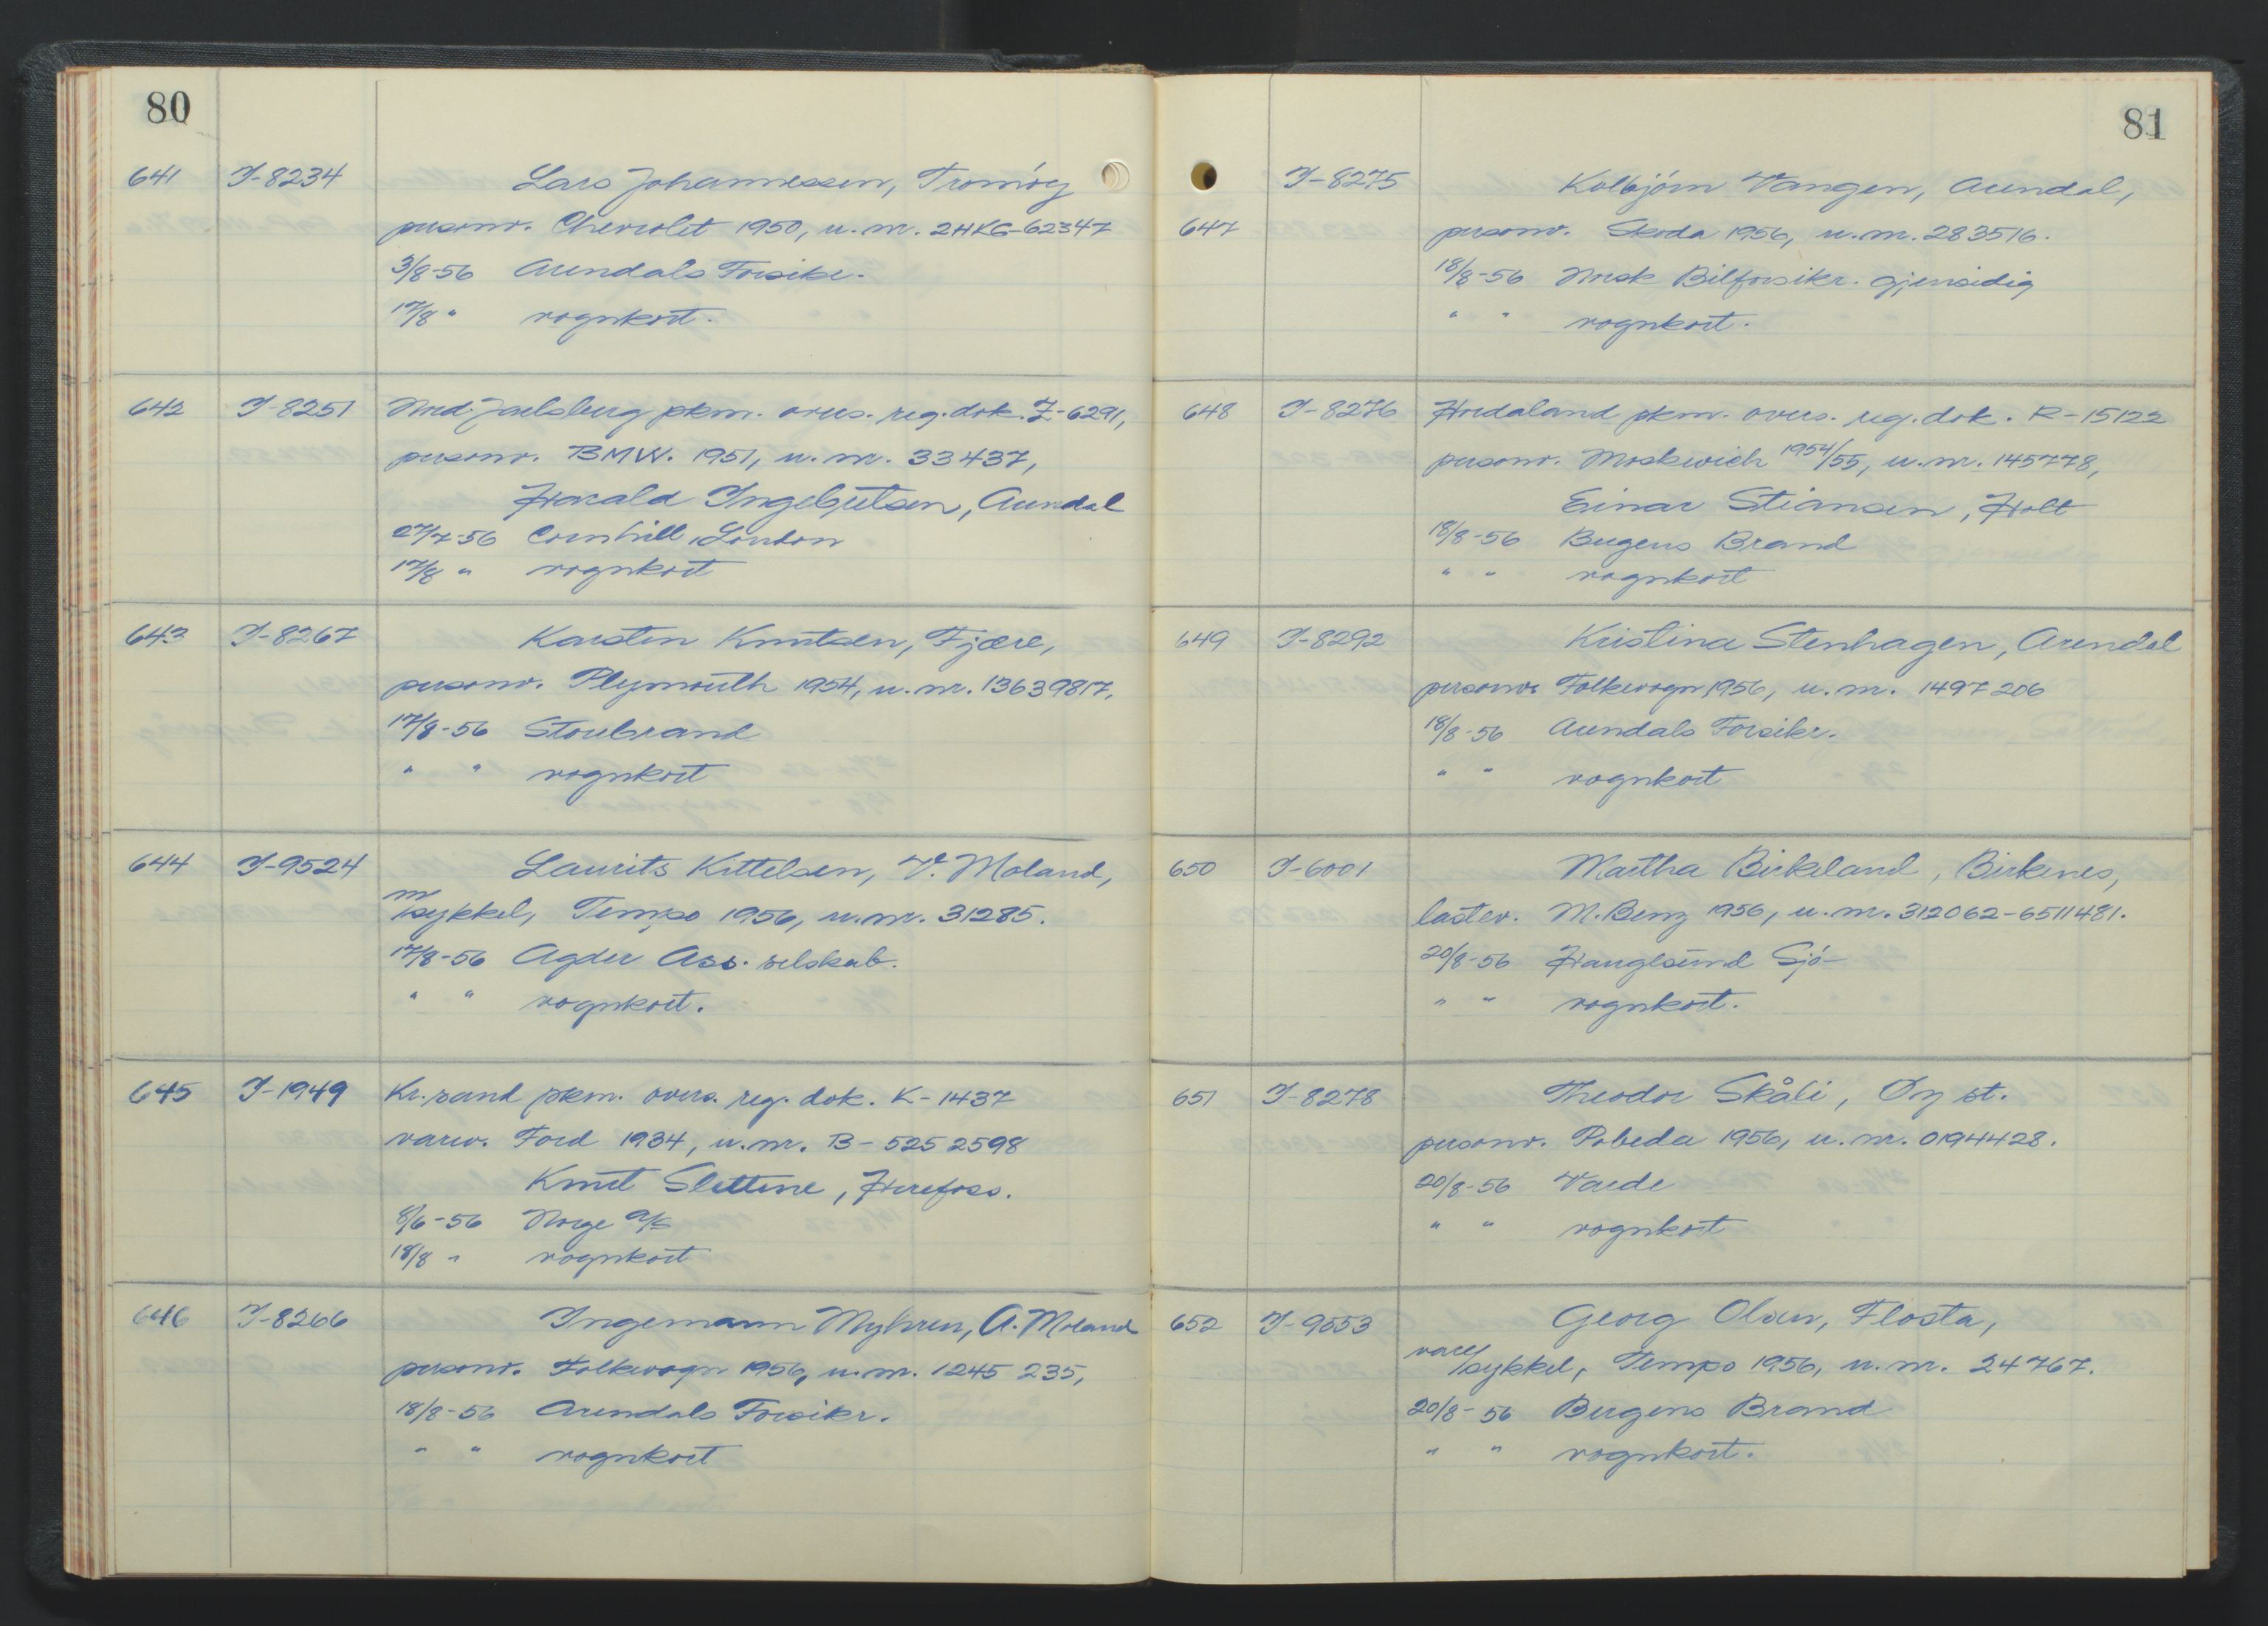 80
641 I-8234 Lars Johannessen, Tromøy
personv. Chevrolet 1950, u.nr. 2HKG-62347
3/8-56 Arendals Forsikr.
17/8 " vognkort.
642 I-8251 Nord. Jarlsberg pkm. overs. reg. dok. Z-6291,
personv. BMW. 1951, u.nr. 33437,
Harald Ingebretsen, Arendal
27/7-56 Cornhill, London
17/8 " vognkort
643 I-8267 Karsten Knutsen, Fjære,
personv. Plymouth 1954, u.nr. 13639817,
17/8-56 Storebrand
" " vognkort
644 I-9524 Laurits Kittelsen, V. Moland,
m/sykkel, Tempo 1956, u.nr. 31285.
17/8-56 Agder Ass. selskab.
" " vognkort.
645 I-1949 Kr.sand pkm. overs. reg. dok. K-1437
varev. Ford 1934, u.nr. B-5252598
Knut Slettene, Herefoss.
8/6-56 Norge a/s
18/8 " vognkort
646 I-8266 Ingemann Myhren, A. Moland
personv. Folkevogn 1956, u.nr. 1245 235,
18/8-56 Arendals Forsikr.
" " vognkort
81
I-8275 Kolbjørn Vangen, Arendal,
647 personv. Skoda 1956, u.nr. 283516.
18/8-56 Norsk Bilforsikr. Gjensidig
" " vognkort.
648 I-8276 Hordaland pkm. overs. reg. dok. R-15122
personv. Moskwich 1954/55, u.nr. 145778,
Einar Stiansen, Holt
18/8-56 Bergens Brand
" " vognkort
649 I-8292 Kristina Stenhagen, Arendal
personv. Folkevogn 1956, u.nr. 1497 206
18/8-56 Arendals Forsikr.
" " vognkort
650 I-6001 Martha Birkeland, Birkenes,
lastev. M.Benz 1956, u.nr. 312062-6511481.
20/8-56 Haugesund Sjø-
" " vognkort.
651 I-8278 Theodor Skåli, Øy st.
personv. Pobeda 1956, u.nr. 0194428.
20/8-56 Varde
" " vognkort
652 I-9553 Georg Olsen, Flosta,
vare/sykkel, Tempo 1956, u.nr. 24767.
20/8-56 Bergens Brand
" " vognkort.